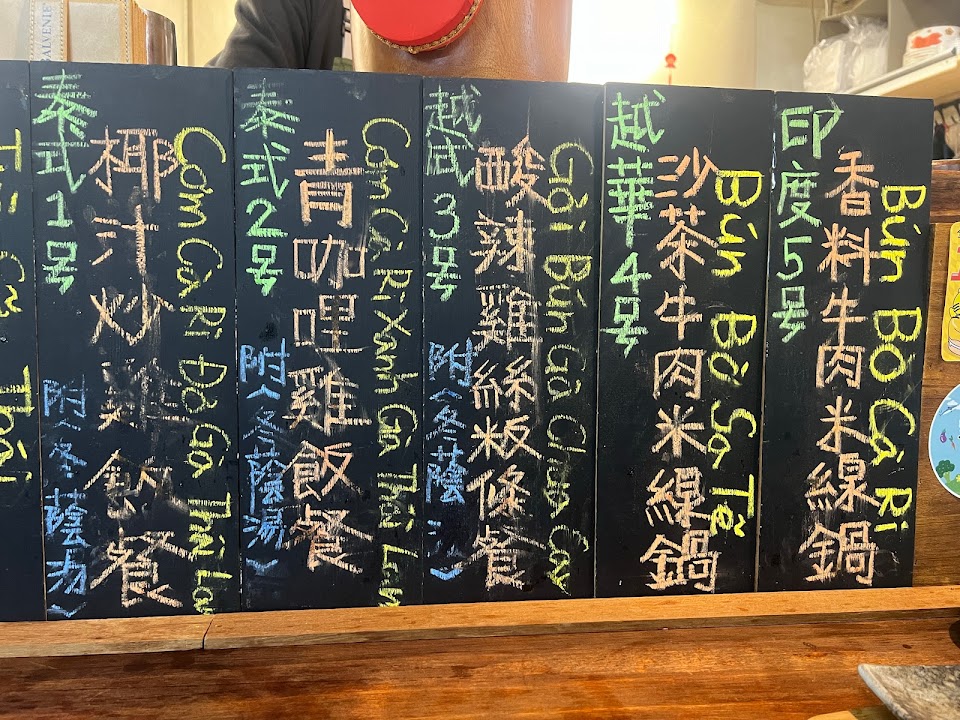 BALVENIE
泰式1号
椰汁炒雞飯餐
附(冬蔭湯)
Cơm Cà Ri Đỏ Gà Thái Lan
泰式2号
青咖哩雞飯餐
附(冬蔭湯)
Cơm Cà Ri Xanh Gà Thái Lan
越式3号
酸辣雞絲粄條餐
附(冬蔭
Gỏi Bún Gà Chua Cay
越華4号
沙茶牛肉米線鍋
Bún Bò Sa Tế
印度5号
香料牛肉米線鍋
Bún Bò Cà Ri